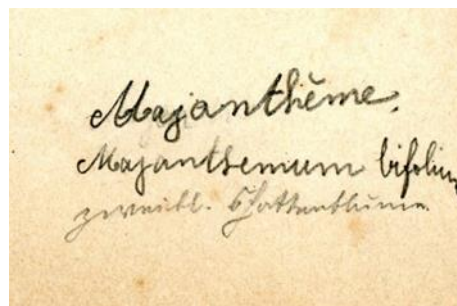 Majanthème.
Majantemum bifolium
zweibl. Schattenblume.